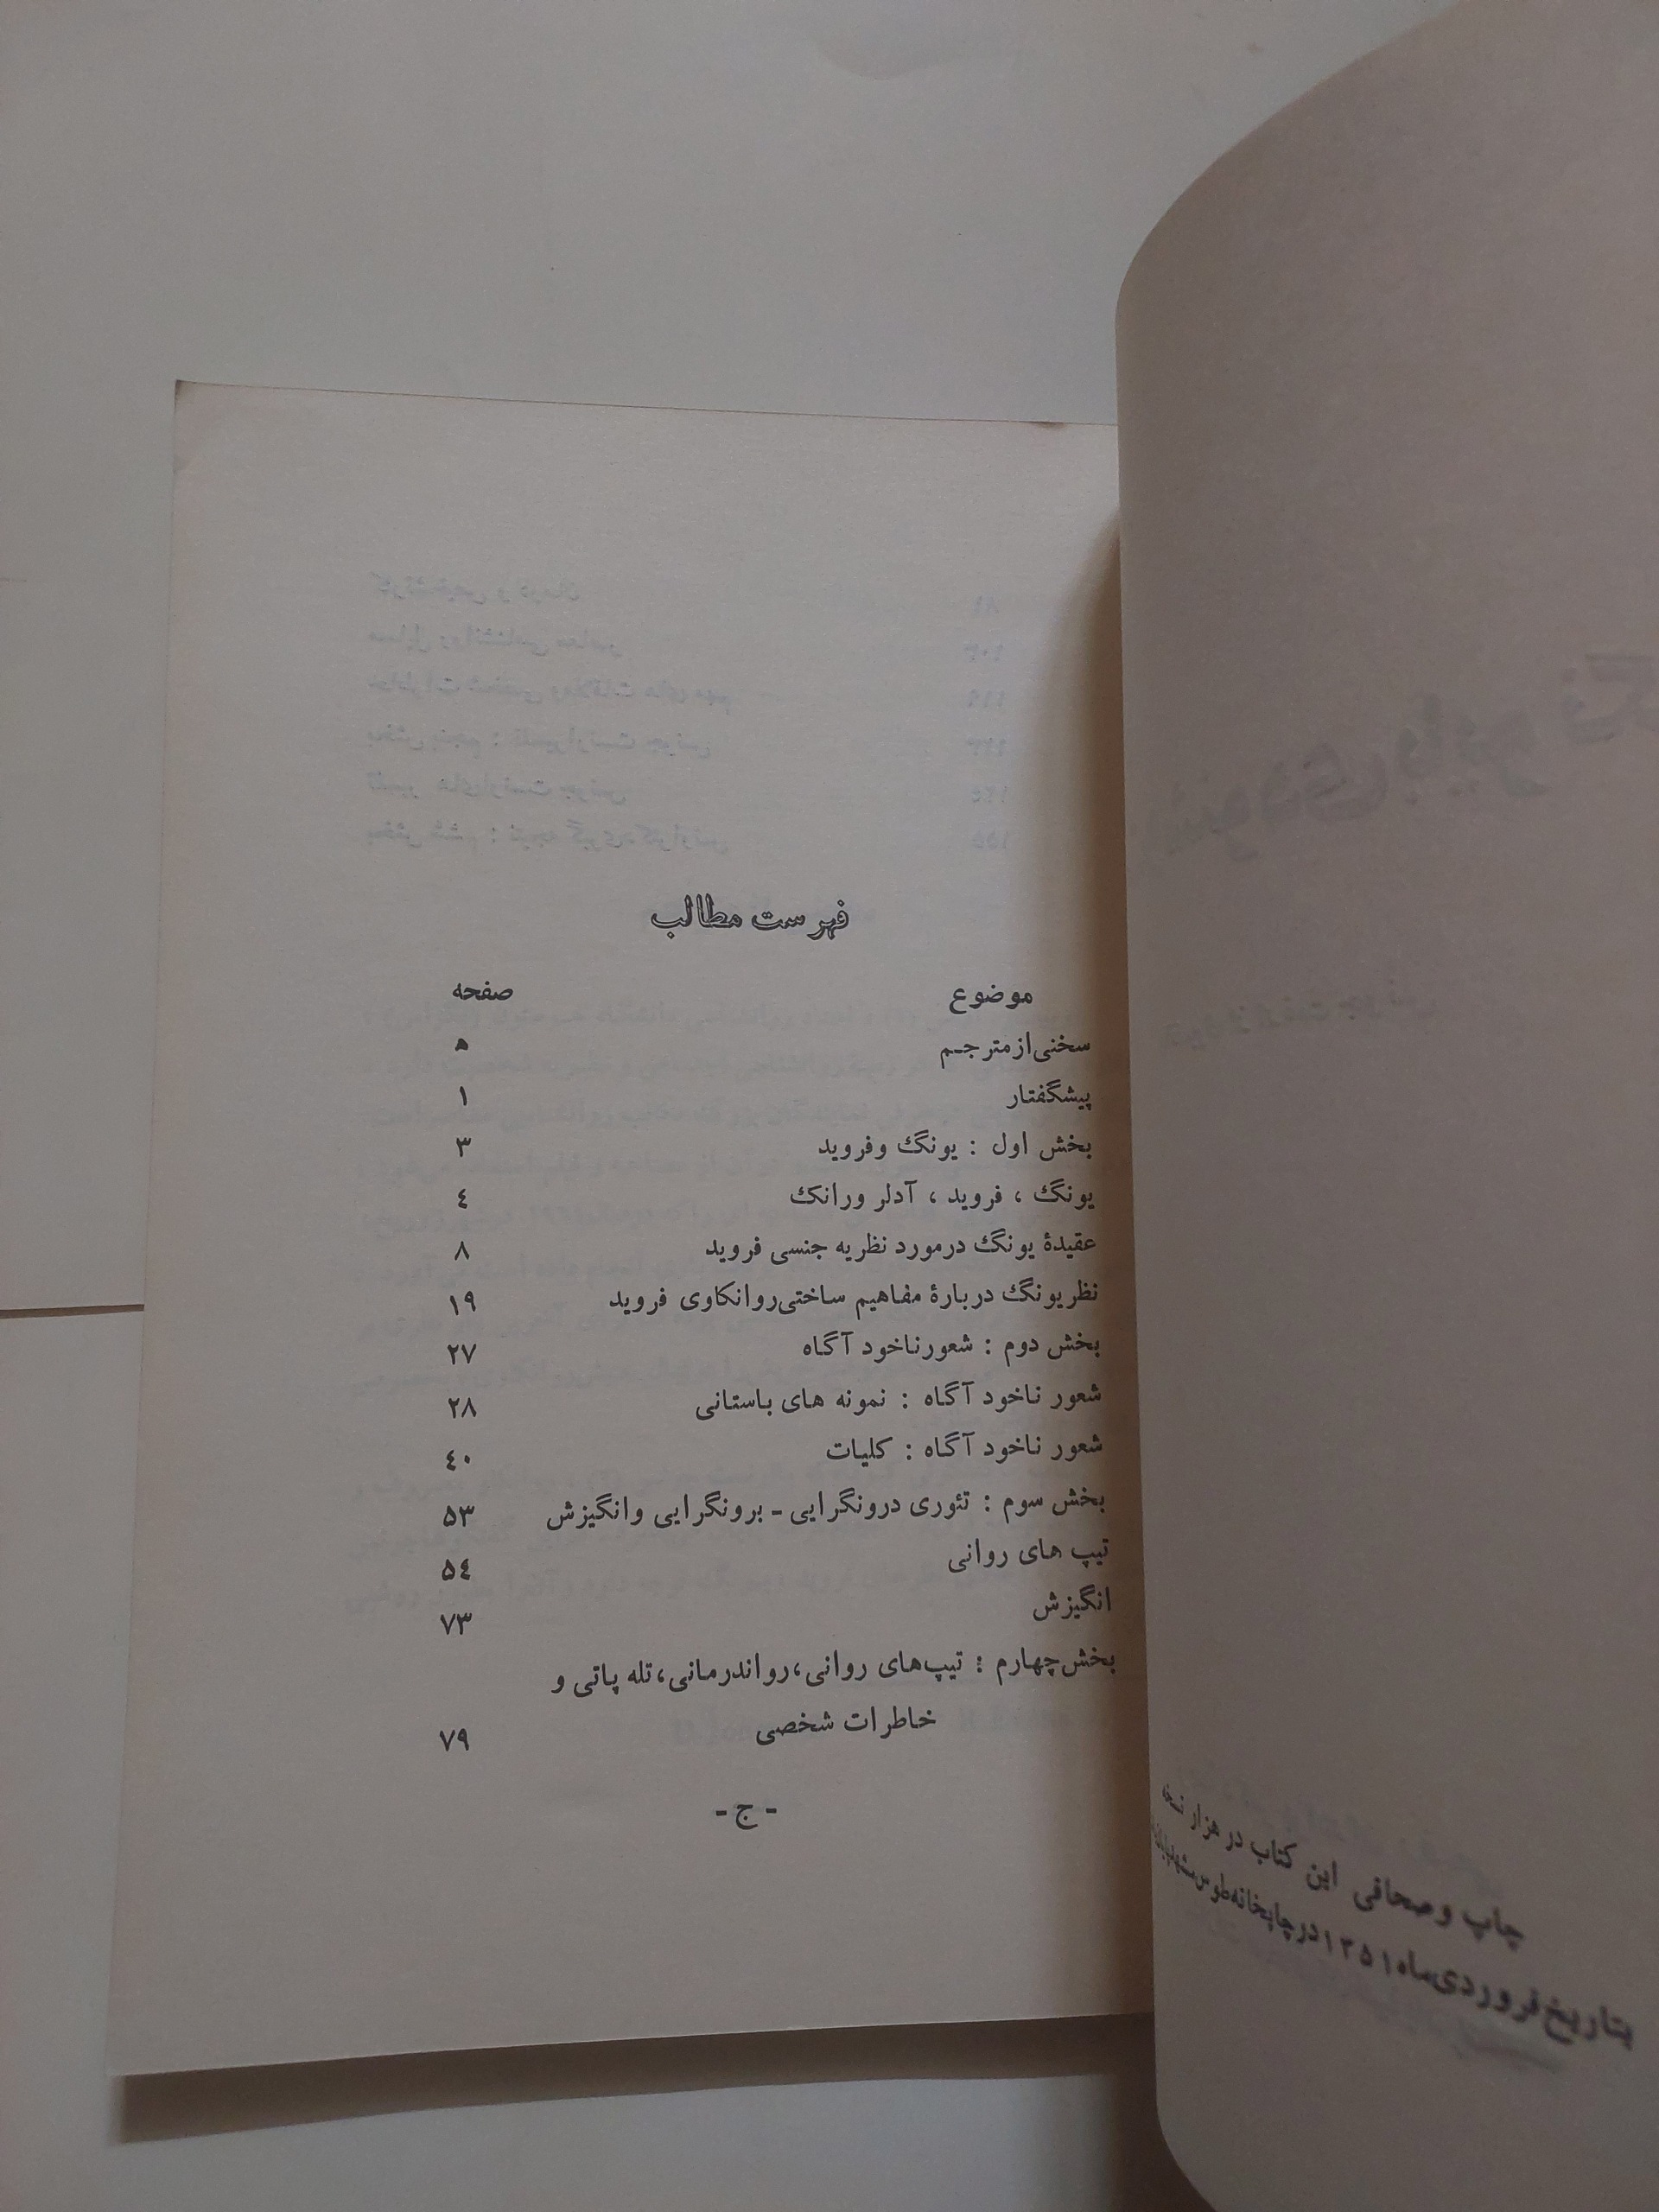 چاپ وصحافی این کتاب در هزار نسخه
بتاریخ فروردی‌ماه ۱۳۵۱ در چاپخانه طوس مشهد
فهرست مطالب
موضوع صفحه
سخنی‌از مترجم ه
پیشگفتار ۱
بخش اول : یونگ وفروید ۳
یونگ ، فروید ، آدلر ورانک ٤
عقیدهٔ یونگ درمورد نظریه جنسی فروید ۸
نظر یونگ دربارهٔ مفاهیم ساختی‌روانکاوی فروید ۱۹
بخش دوم : شعورناخود آگاه ۲۷
شعور ناخود آگاه : نمونه های باستانی ۲۸
شعور ناخود آگاه : کلیات ٤۰
بخش سوم : تئوری درونگرایی ـ برونگرایی وانگیزش ۵۳
تیپ های روانی ۵٤
انگیزش ۷۳
بخش‌چهارم : تیپ‌های روانی،رواندرمانی،تله پاتی و
خاطرات شخصی ۷۹
- ج -